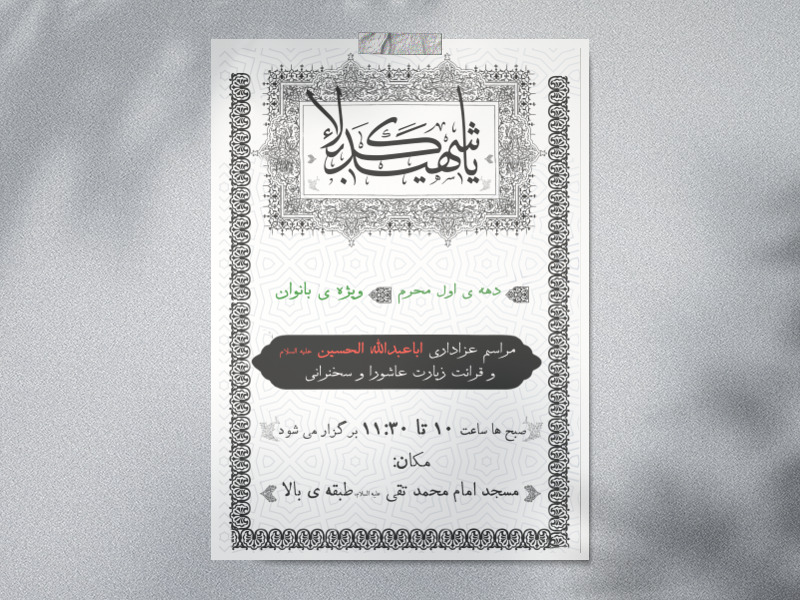 یا شهید کربلا
دهه ی اول محرم ویژه ی بانوان
مراسم عزاداری اباعبدالله الحسین علیه السلام
و قرائت زیارت عاشورا و سخنرانی
صبح ها ساعت ۱۰ تا ۱۱:۳۰ برگزار می شود
مکان:
مسجد امام محمد تقی علیه السلام طبقه ی بالا